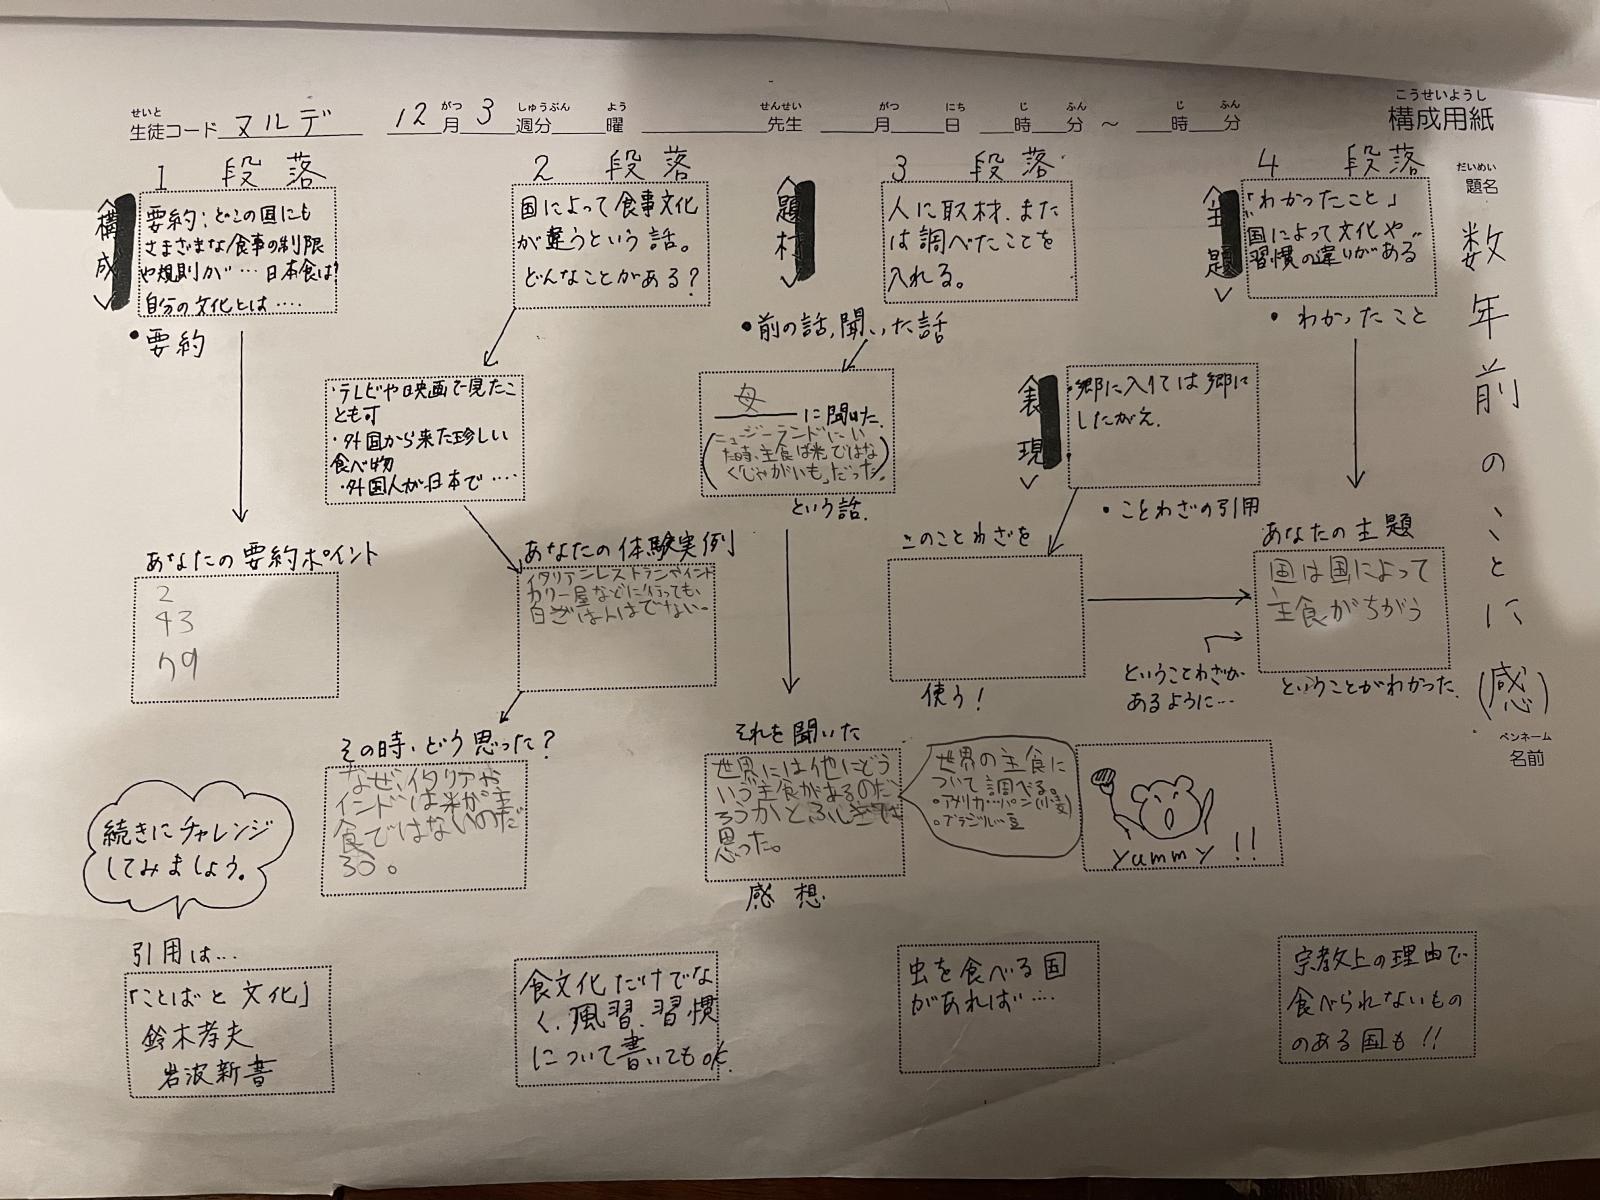 せいと
生徒コード マルデ
がつ しゅうぶん よう
12月3週分 曜
せんせい がつ にち じ ふん じ ふん
先生 月 日 時 分 ～ 時 分
こうせいようし
構成用紙
だいめい
題名
数年前のことに(感)
ペンネーム
名前
1 段落
<構成>
要約：どこの国にも
さまざまな食事の制限
や規則が…日本食は?
自分の文化とは‥‥
・要約
あなたの要約ポイント
2
43
79
2 段落
国によって食事文化
が違うという話。
どんなことがある？
・テレビや映画で見たこ
とも可
・外国から来た珍しい
食べ物
・外国人が日本で‥‥
あなたの体験実例
イタリアンレストランやインド
カリー屋などに行っても、
白ごはんはでない。
その時、どう思った？
なぜ、イタリアや
インドは米が主
食ではないのだ
ろう。
<題材>
3 段落
人に取材、また
は調べたことを
入れる。
・前の話,聞いた話
母に聞いた
(ニュージーランドにい
た時、主食は米ではな
く「じゃがいも」だった。)
という話.
それを聞いた
世界には他にどう
いう主食があるのだ
ろうかとふしぎに
思った。
感想
世界の主食に
ついて調べる。
・アメリカ…パン(小麦)
・ブラジル…豆
<主題>
4 段落
「わかったこと」
国によって文化や
習慣の違いがある
・わかったこと
<表現>
・郷に入りては郷に
したがえ.
・ことわざの引用
このことわざを
使う！
ということわざが
あるように…
あなたの主題
国は国によって
主食がちがう
ということがわかった.
yummy !!
続きにチャレンジ
してみましょう。
引用は…
「ことばと文化」
鈴木孝夫
岩波新書
食文化だけでな
く、風習、習慣
について書いてもOK.
虫を食べる国
があれば‥‥
宗教上の理由で
食べられないもの
のある国も!!